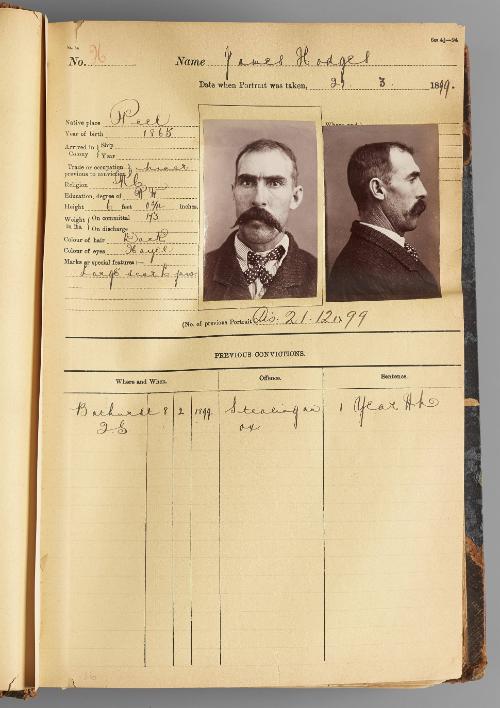 No. H Name James Hodges
Date when Portrait was taken, 29 3 1899.
Native place Peel
Year of birth 1868
Arrived in Colony { Ship
Year
Trade or occupation
previous to conviction
Religion R C
Education, degree of R W
Height 6 feet 0¾ inches.
Weight in lbs. { On committal 173
On discharge
Colour of hair Dark
Colour of eyes Hazel
Marks or special features:—
Large scar
(No. of previous Portrait Dis. 21.12.99
PREVIOUS CONVICTIONS.
Where and When. Offence. Sentence.
Bathurst 8 2 1899 Stealing an 1 Year HL
Q S ox